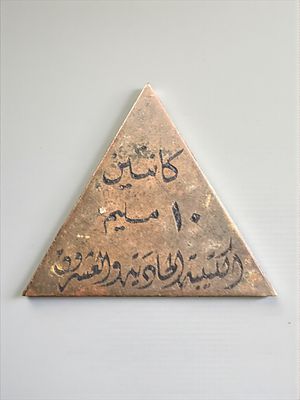 كانتين
١٠ مليم
الكتيبة الحادية والعشرون